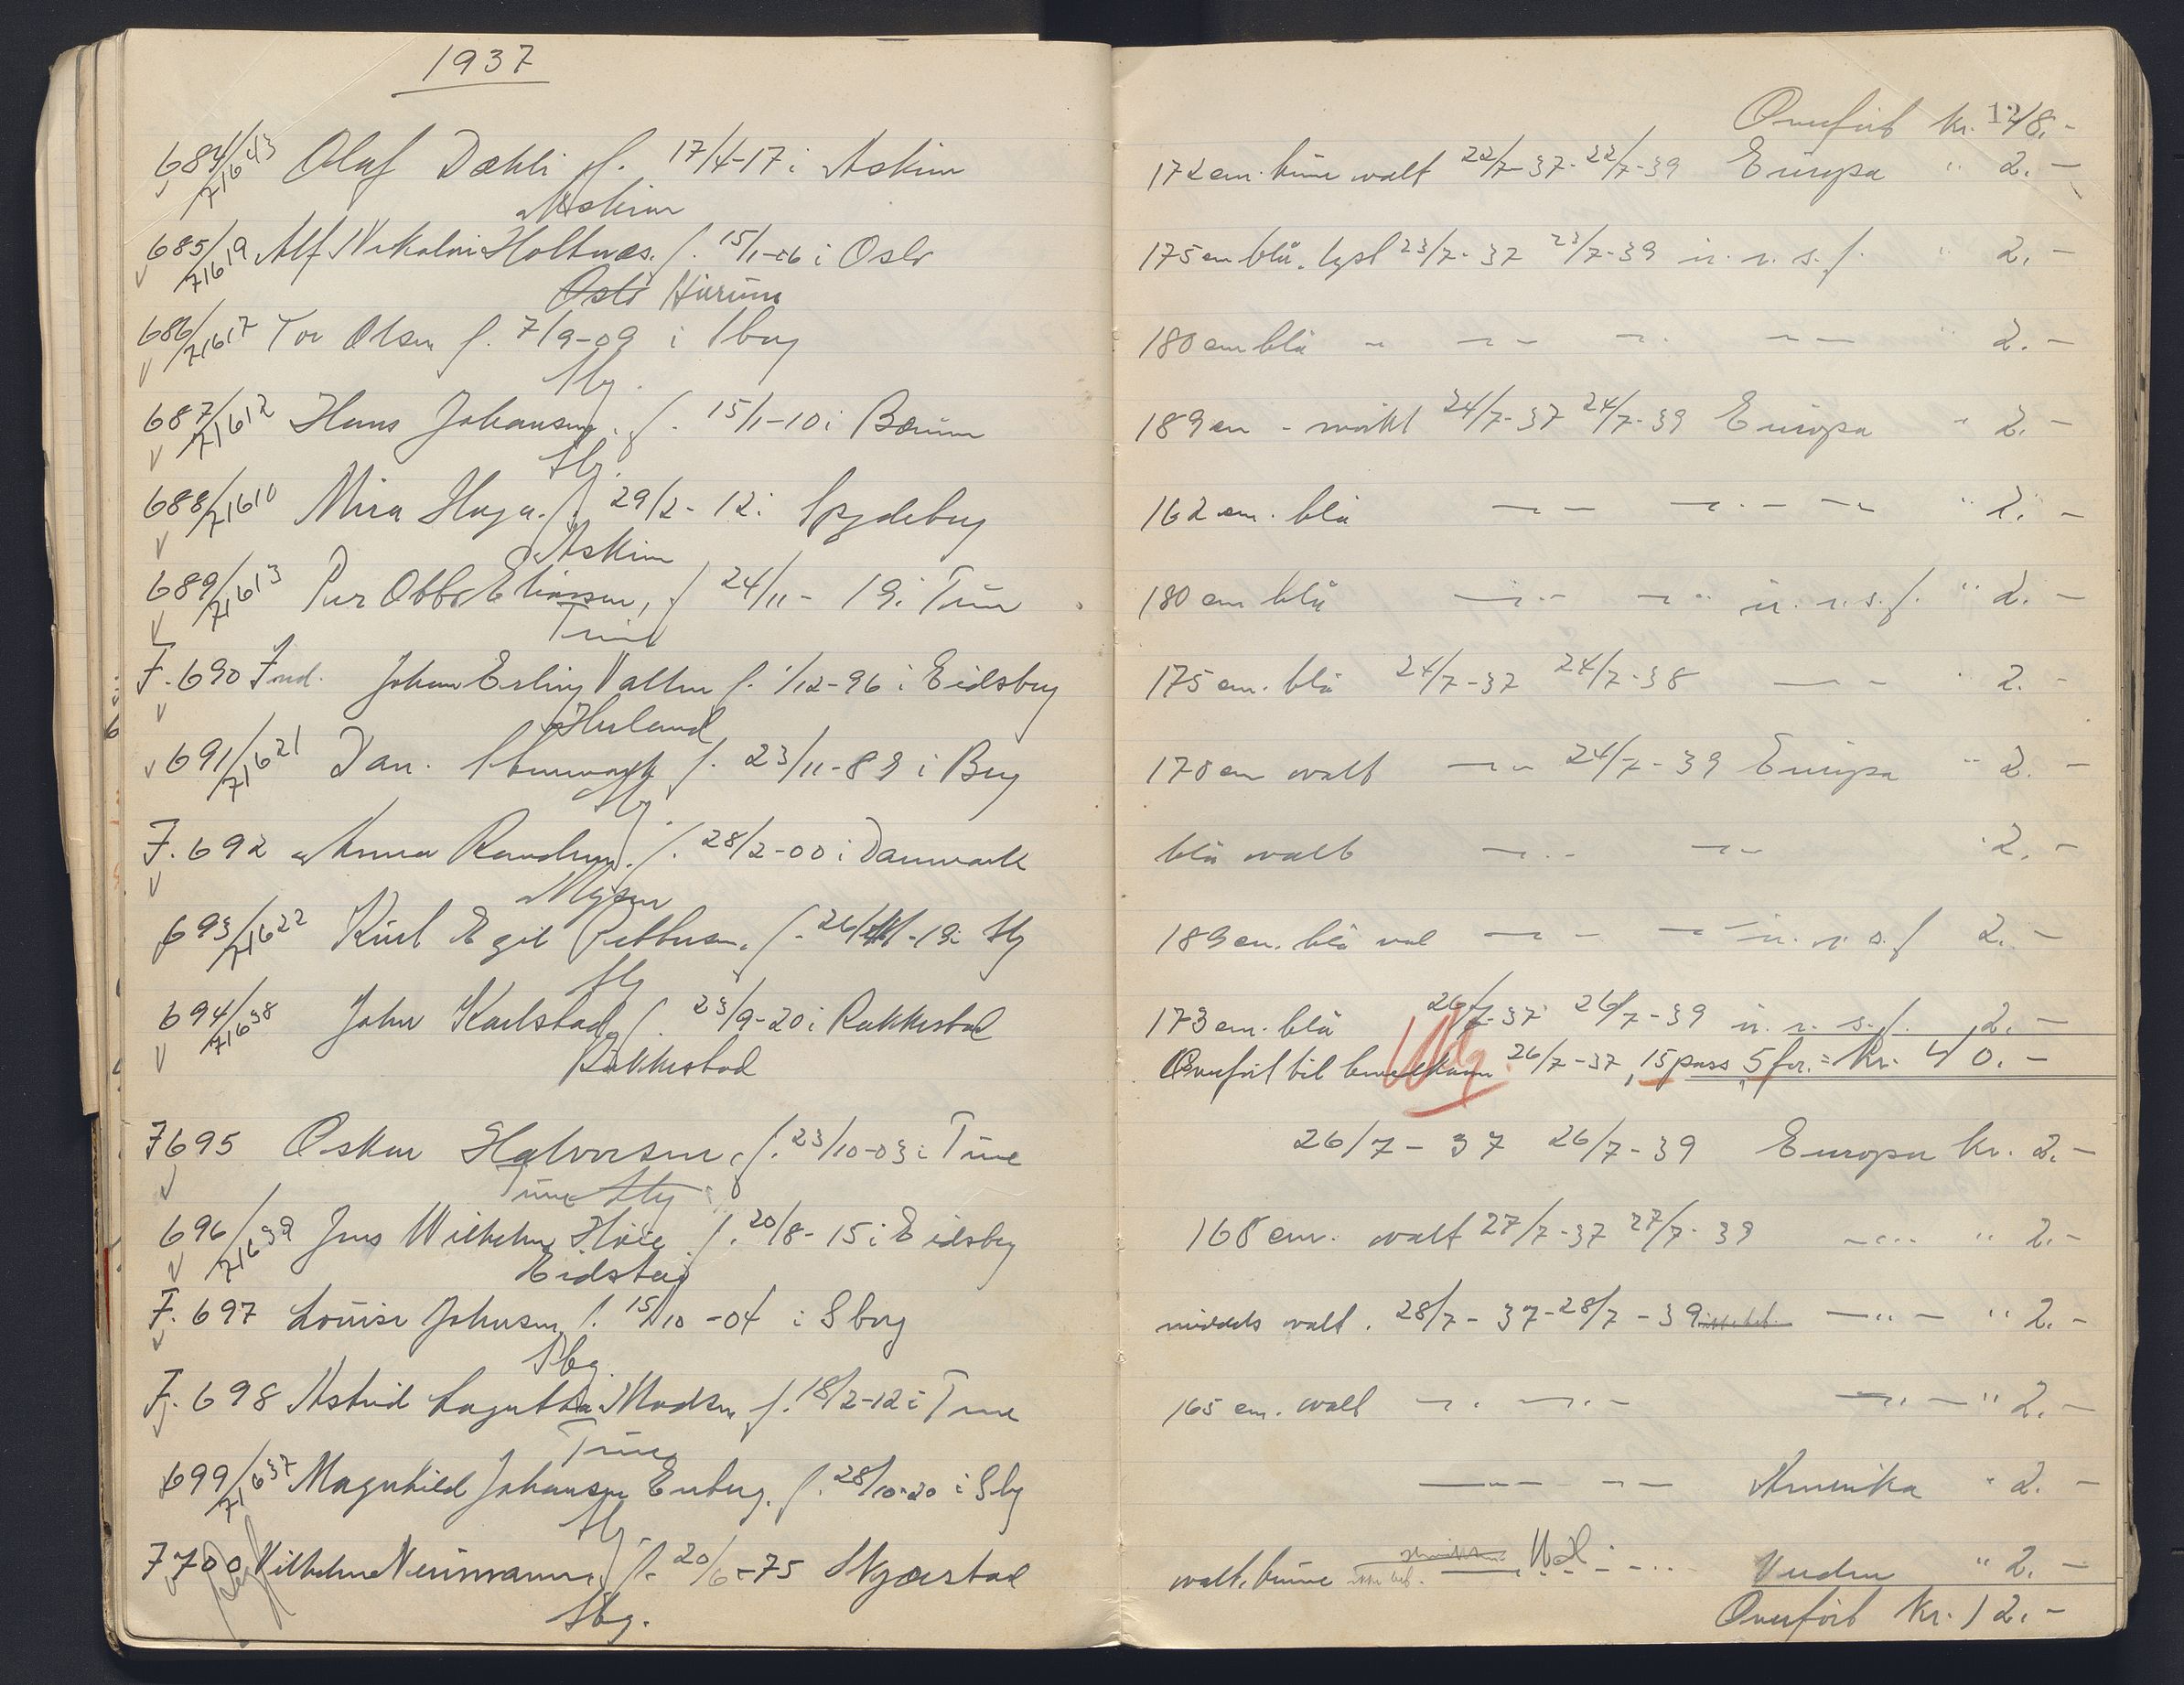 1937
684/71643 Olaf Dæhli f. 17/4-17 i Askim
Askim
685/71619 Alf Nikolai Holtnæs. f. 15/1-06 i Oslo
Oslo Hurum
686/71617 Tor Olsen f. 7/9-09 i Sbug
Sbg.
687/71612 Hans Johansen. f. 15/1-10 i Bærum
Sbg.
688/71610 Mira Haga. f. 29/2-12 i Spydeberg
Askim
689/71613 Per Otto Eliassen, f 24/11-19 i Tune
Tune
F. 690 Ind. Johan Erling f. 1/12-96 i Eidsberg
691/71621 Dan. f. 23/11-89 i Berg
Sbg
F. 692 Anna f. 28/2-00 i Danmark
Mysen
693/71622 Egil Pettersen. f. -19 i Sbg
Sbg
694/71638 John Karlstad f. 23/9-20 i Rakkestad
Rakkestad
F 695 Oskar Halvorsen, f. 23/10-03 i Tune
Tune Sbg
696/71639 Jens Wilhelm Høie f. 20/8-15 i Eidsberg
Eidsberg
F. 697 Louise Johnsen f. 15/10-04 i Sborg
Sbg.
F. 698 Astrid Madsen f. 18/2-12 i Tune
Tune
699/71637 Magnhild Johansen Enberg. f. 28/10-20 i Sbg
Sbg
F 700 Vilhelm Neumann, f. 20/6-75
Sbg.
Overført kr. 128.-
172 cm. brune ovalt 22/7-37-22/7-39 Europa " 2.-
175 cm blå. lyst 23/7-37 23/7-39 u. r. s. f. " 2.-
180 cm blå " 2.-
189 cm - mørkt 24/7-37 24/7-39 Europa " 2.-
162 cm. blå " 2.-
180 cm blå u. r. s. f. " 2.-
175 cm. blå 24/7-37 24/7-38 " 2.-
170 cm ovalt 24/7-39 Europa " 2.-
blå ovalt 2.-
189 cm. blå oval u. r. s. f 2.-
173 cm. blå 26/7-37 26/7-39 u. r. s. f. 2.-
Overført til 26/7-37, 15 pass, 5 for. = Kr. 40.-
26/7-37 26/7-39 Europa kr. 2.-
168 cm. ovalt 27/7-37 27/7-39 " 2.-
middels ovalt. 28/7-37-28/7-39 " 2.-
165 cm. ovalt " 2.-
Amerika " 2.-
ovalt. brune Verden " 2.-
Overført kr. 12.-